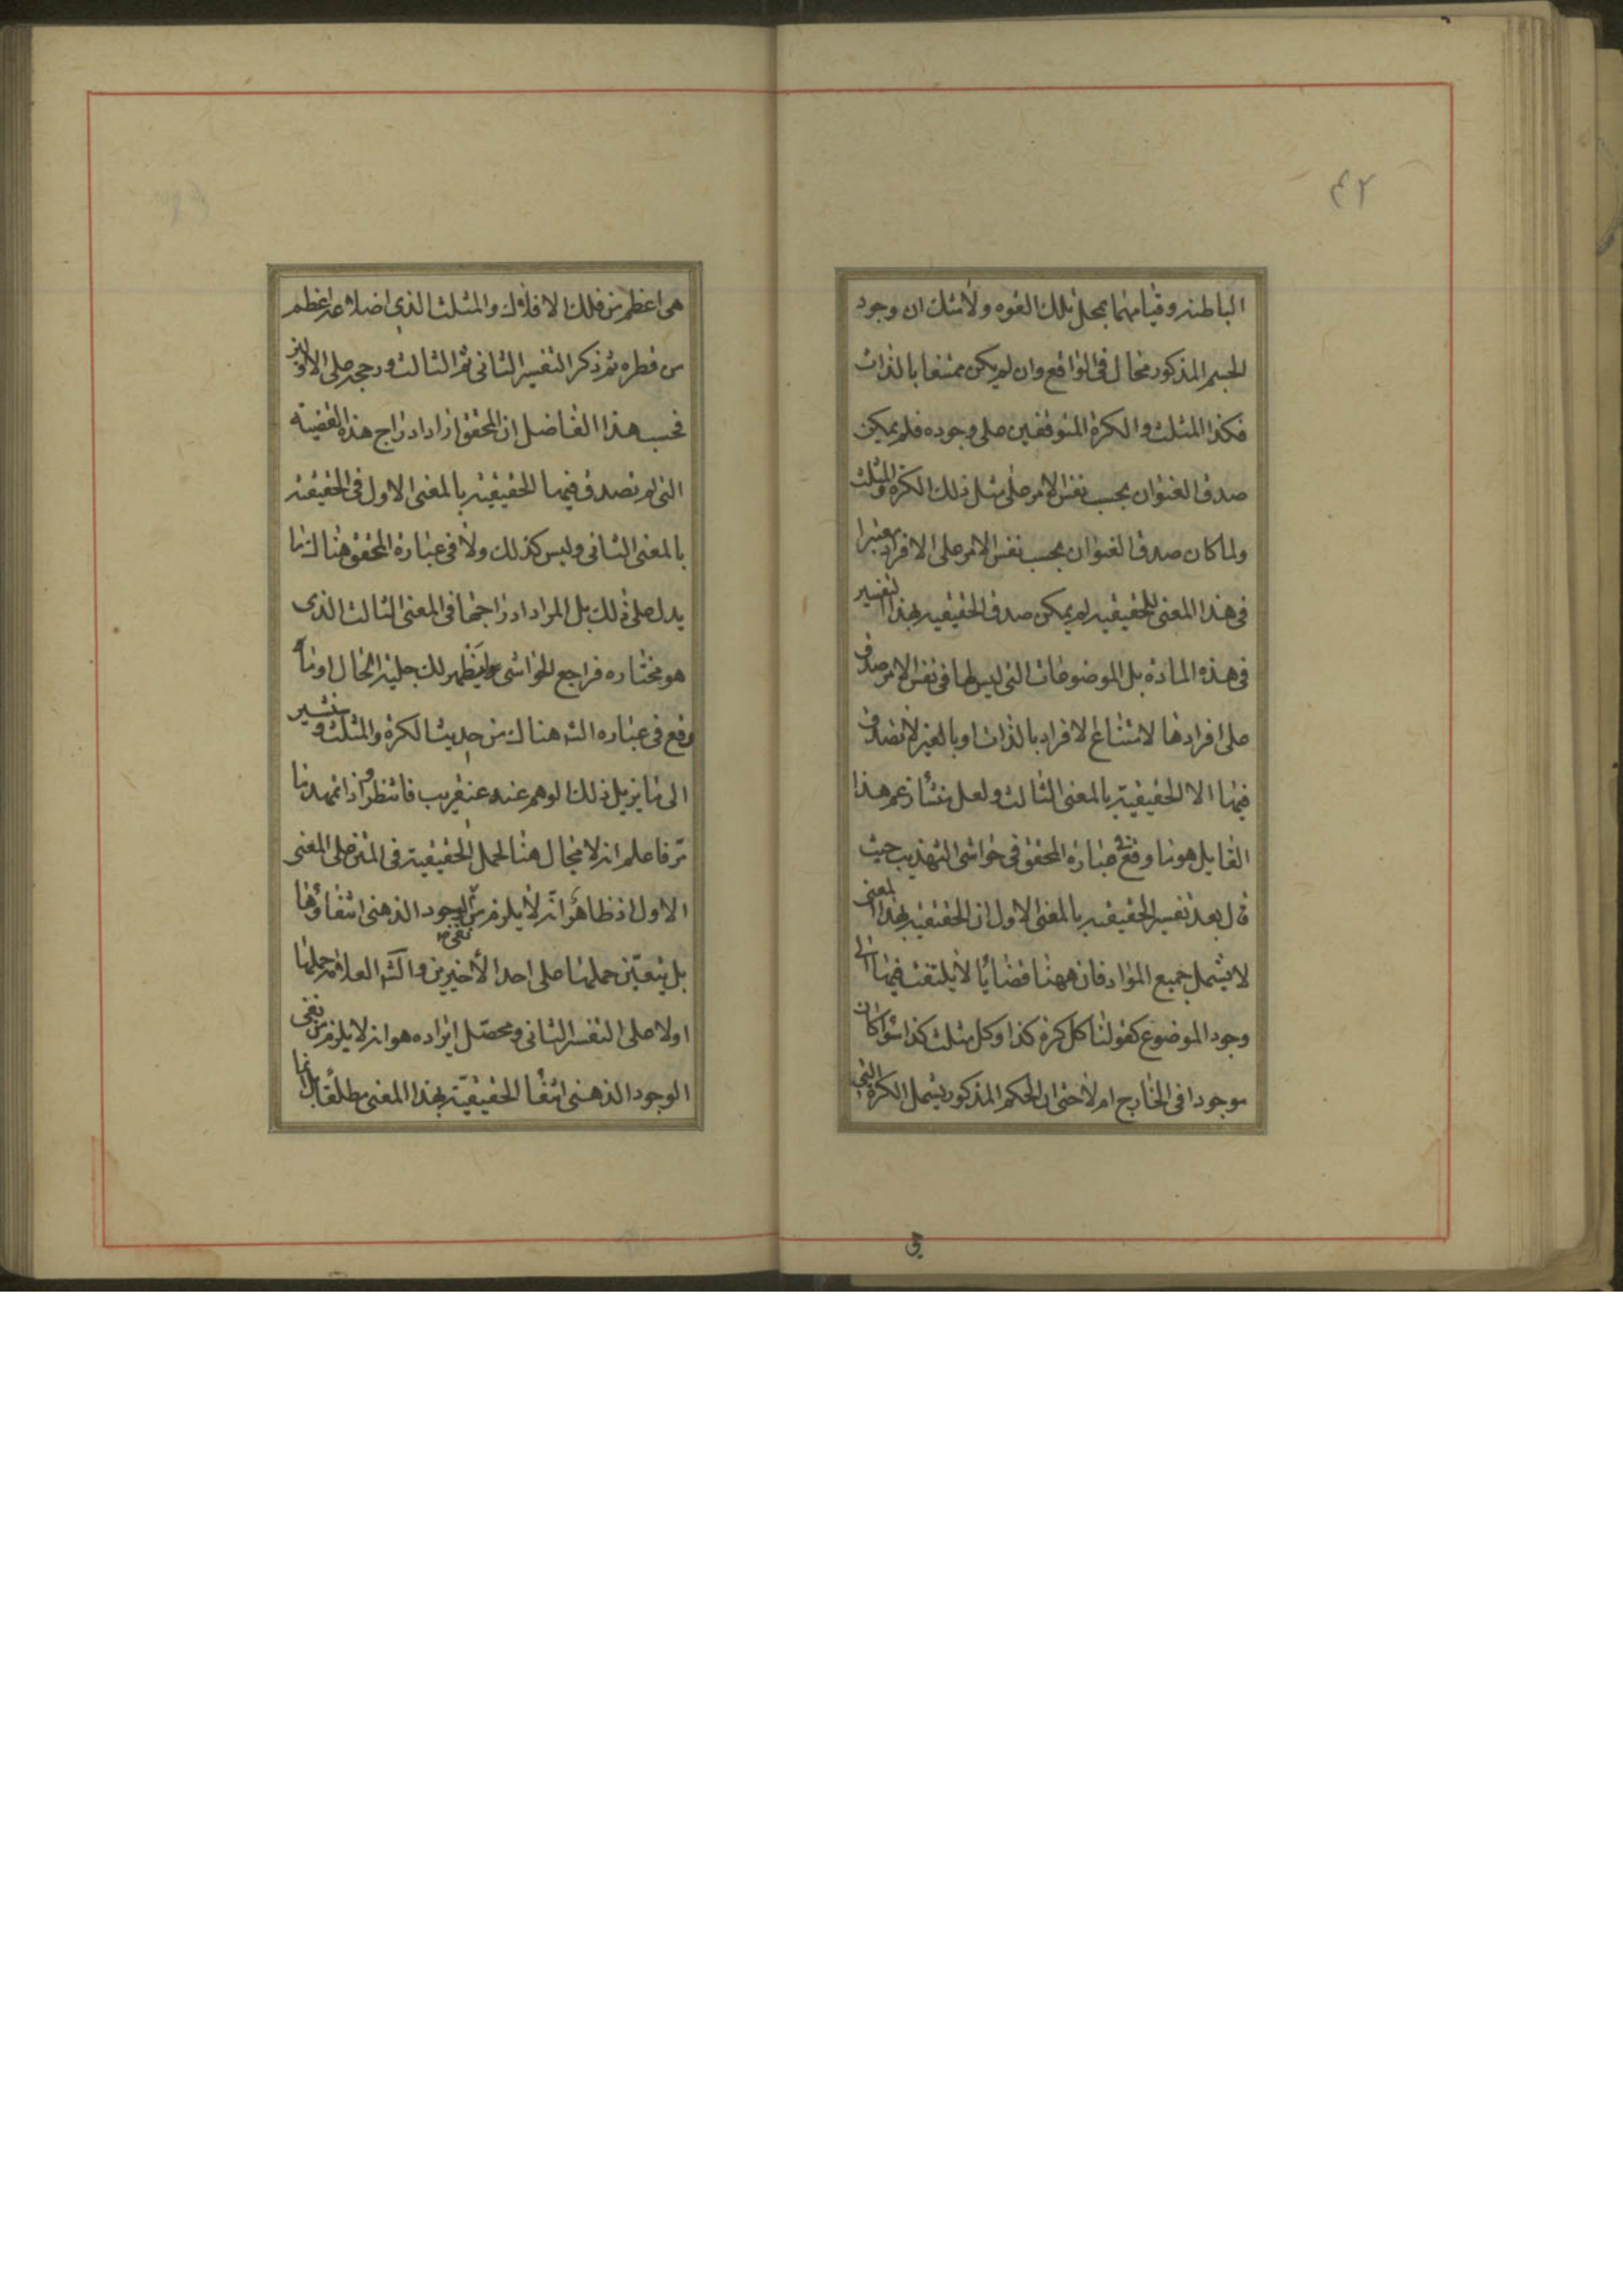 ٤٢
الباطنه وقيامهما بمحل تلك القوه ولا شك ان وجود
الجسم المذكور محال فى الواقع وان لم يكن ممتنعا بالذات
فكذا المثلث والكرة المتوقفين على وجوده فلم يمكن
صدق العنوان بحسب نفس الامر على مثل ذلك الكرة والمثلث
ولما كان صدق العنوان بحسب نفس الامر على الافراد معتبرا
فى هذا المعنى للحقيقيه لم يمكن صدق الحقيقيه بهذا التفسير
فى هذه المادة بل الموضوعات التى ليس لها فى نفس الامر صدق
على افرادها لامتناع الافراد بالذات او بالغير لا تصدق
فيها الا الحقيقية بالمعنى الثالث ولعل منشأ زعم هذا
القايل هو ما وقع فى عبارة المحقق فى حواشى التهذيب حيث
قال بعد تفسير الحقيقيه بالمعنى الاول ان الحقيقيه بهذا المعنى
لا يشمل جميع المواد فان ههنا قضايا لا يلتفت فيها الى
وجود الموضوع كقولنا كل كرة كذا وكل مثلث كذا سواء كان
موجودا فى الخارج ام لا حتى ان الحكم المذكور يشمل الكرة التى
هى اعظم من فلك الافلاك والمثلث الذى اضلاعه اعظم
من قطره ثم ذكر التفسير الثانى ثم الثالث ورجحه على الاولين
فحسب هذا الفاضل ان المحقق اراد ادراج هذه القضيته
التى لم تصدق فيها الحقيقيه بالمعنى الاول فى الحقيقيه
بالمعنى الثانى وليس كذلك ولا فى عبارة المحقق هناك ما
يدل على ذلك بل المراد ادراجها فى المعنى الثالث الذى
هو مختاره فراجع الحواشى ليظهر لك جلية الحال اوما
وقع فى عباره الشه هناك من حديث الكرة والمثلث وسنشير
الى ما يزيل ذلك الوهم عنه عنقريب فانتظر واذا تمهد ما
مر فاعلم انه لا مجال هنا لحمل الحقيقية فى المتن على المعنى
الاول اذ ظاهر انه لا يلزم من نفى الوجود الذهنى انتفاؤها
بل يتعين حملها على احد الأخيرين والشه العلامه حملها
اولا على التفسير الثانى ومحصل ايراده هو انه لا يلزم من نفى
الوجود الذهنى انتفا الحقيقيّة بهذا المعنى مطلقا بل انما